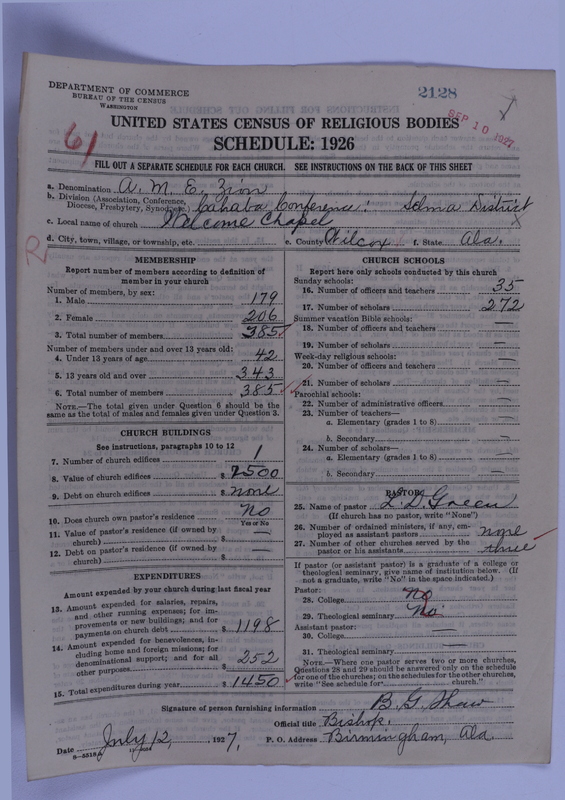 DEPARTMENT OF COMMERCE
BUREAU OF THE CENSUS
WASHINGTON
2128
SEP 10 1927
61
UNITED STATES CENSUS OF RELIGIOUS BODIES
SCHEDULE: 1926
FILL OUT A SEPARATE SCHEDULE FOR EACH CHURCH. SEE INSTRUCTIONS ON THE BACK OF THIS SHEET
a. Denomination A. M. E. Zion
b. Division (Association, Conference, Diocese, Presbytery, Synod, etc.) Cahaba Conference: Selma District
c. Local name of church Welcome Chapel
d. City, town, village, or township, etc. e. County Wilcox f. State Ala.
R
MEMBERSHIP
Report number of members according to definition of
member in your church
Number of members, by sex:
1. Male 179
2. Female 206
3. Total number of members 385
Number of members under and over 13 years old:
4. Under 13 years of age 42
5. 13 years old and over 343
6. Total number of members 385
NOTE.—The total given under Question 6 should be the
same as the total of males and females given under Question 3.
CHURCH BUILDINGS
See instructions, paragraphs 10 to 12
7. Number of church edifices 1
8. Value of church edifices $ 7500
9. Debt on church edifices $ none
10. Does church own pastor's residence No
Yes or No
11. Value of pastor's residence (if owned by
church) $ —
12. Debt on pastor's residence (if owned by
church) $ —
EXPENDITURES
Amount expended by your church during last fiscal year
13. Amount expended for salaries, repairs,
and other running expenses; for im-
provements or new buildings; and for
payments on church debt $ 1198
14. Amount expended for benevolences, in-
cluding home and foreign missions; for
denominational support; and for all
other purposes $ 252
15. Total expenditures during year $ 1450
CHURCH SCHOOLS
Report here only schools conducted by this church
Sunday schools:
16. Number of officers and teachers 35
17. Number of scholars 272
Summer vacation Bible schools:
18. Number of officers and teachers —
19. Number of scholars —
Week-day religious schools:
20. Number of officers and teachers —
21. Number of scholars —
Parochial schools:
22. Number of administrative officers —
23. Number of teachers—
a. Elementary (grades 1 to 8) —
b. Secondary —
24. Number of scholars—
a. Elementary (grades 1 to 8) —
b. Secondary —
PASTOR
25. Name of pastor L. D. Green
(If church has no pastor, write "None")
26. Number of ordained ministers, if any, em-
ployed as assistant pastors none
27. Number of other churches served by the
pastor or his assistants three
If pastor (or assistant pastor) is a graduate of a college or
theological seminary, give name of institution below. (If
not a graduate, write "No" in the space indicated.)
Pastor:
28. College No
29. Theological seminary No
Assistant pastor:
30. College —
31. Theological seminary —
NOTE.—Where one pastor serves two or more churches,
Questions 28 and 29 should be answered only on the schedule
for one of the churches; on the schedules for the other churches,
write "See schedule for church."
Signature of person furnishing information B. G. Shaw
Official title Bishop.
Date July 12, 1927, P. O. Address Birmingham, Ala.
8—5518